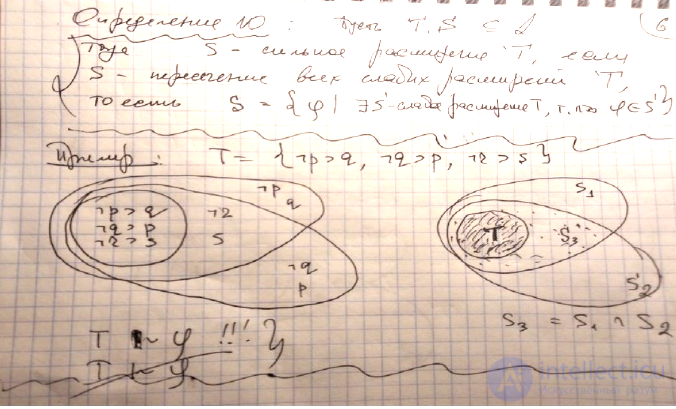 Определение 10 : Пусть T, S ⊆ L
6
Тогда S - сильное расширение T, если
S - пересечение всех слабых расширений T,
то есть S = { φ | ∃ S' - слабое расширение T, т.что φ ∈ S' }
Пример : T = { ¬p > q, ¬q > p, ¬r > s }
¬p > q
¬q > p
¬r > s
¬r
s
¬p
q
¬q
p
S₁
T
S₃
S₂
S₃ = S₁ ∩ S₂
T |~ φ !!! }
T |~ φ
intellect.icu